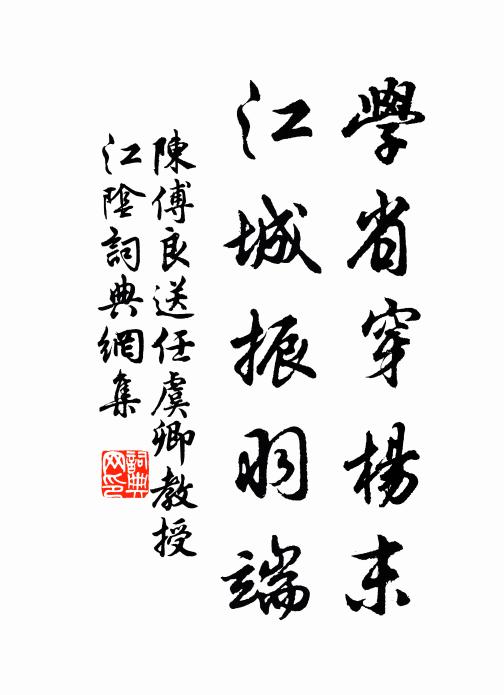 學省穿楊末
江城振羽端
陳傅良送任虞卿教授
江陰詞典網集
詞典
网印